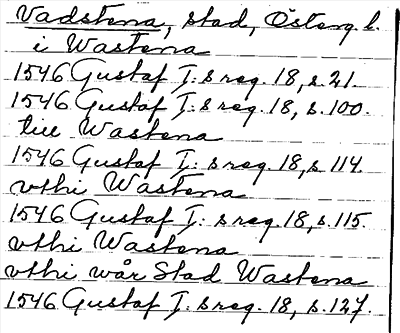 Vadstena, stad, Österg. l.
i Wastena
1546 Gustaf I: s reg. 18, s. 21.
1546 Gustaf I: s reg. 18, s. 100.
till Wastena
1546 Gustaf I: s reg. 18, s. 114.
vthi Wastena
1546 Gustaf I: s reg. 18, s. 115.
vthi Wastena
vthi wår Stad Wastena
1546 Gustaf I: s reg. 18, s. 127.